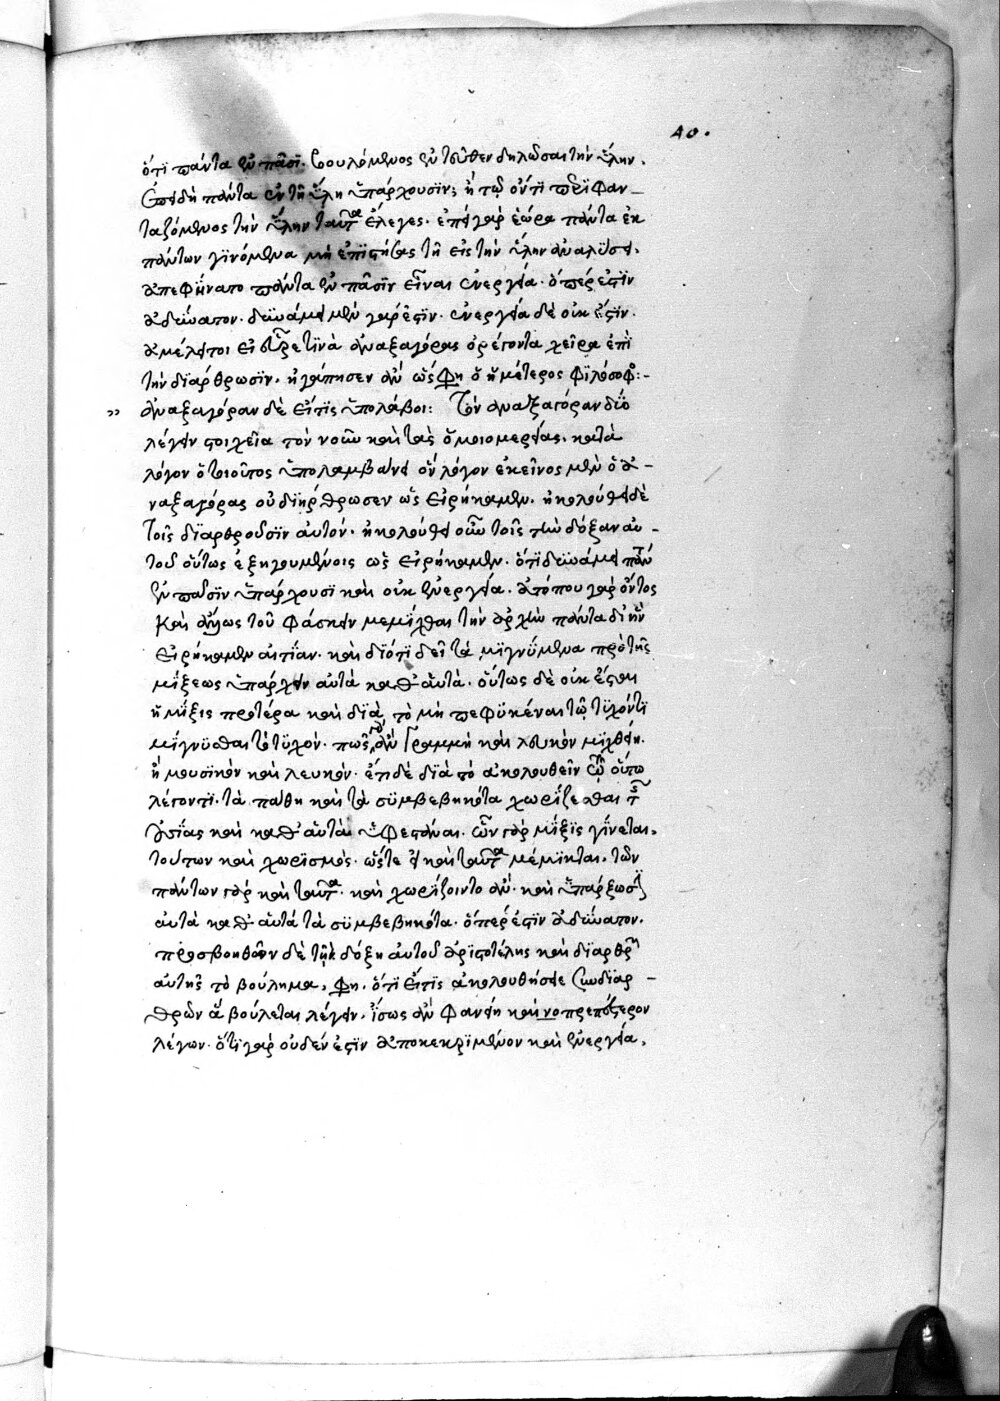 40.
ὅτι πάντα ἐν πᾶσι. βουλόμενος ἐντεῦθεν δηλῶσαι τὴν ὕλην.
ἐπειδὴ πάντα ἐν τῇ ὕλῃ ὑπάρχουσιν; ἢ τῷ ὄντι περὶ φαν_
ταζόμενος τὴν ὕλην ταῦτα ἔλεγεν. ἐπεὶ γὰρ ἑώρα πάντα ἐκ
πάντων γϊνόμενα μὴ ἐπιστήσας τῇ εἰς τὴν ὕλην ἀναλύσει.
ἀπεφήνατο πάντα ἐν πᾶσϊν εἶναι ἐνεργεία. ὅπερ ἐστὶν
ἀδύνατον. δυνάμει μὲν γάρ ἐστϊν. ἐνεργεία δὲ οὐκ ἔστϊν.
ἀμέλει τοι εἰ εὗρε τϊνὰ ἀναξαγόρας ὀρέγοντα χεῖρα ἐπὶ
τὴν διάρθρωσϊν. ἠγάπησεν ἂν ὥς φη ὁ ἡμέτερος φϊλόσοφος:-
» ἀναξαγόραν δὲ εἴ τις ὑπολάβοι: Τὸν ἀναξαγόραν δύο
λέγειν στοιχεῖα τὸν νοῦν καὶ τὰς ὁμοιομερείας. κατὰ
λόγον ὁ τοιοῦτος ὑπολαμβάνει ὃν λόγον ἐκεῖνος μὲν ὁ ἀ-
ναξαγόρας οὐ διήρθρωσεν ὡς εἰρήκαμεν. ἠκολούθει δὲ
τοῖς διαρθροῦσϊν αὐτόν. ἠκολούθει οὖν τοῖς τὴν δόξαν αὐ-
τοῦ οὕτως ἐξηγουμένοις ὡς εἰρήκαμεν. ὅτι δυνάμει πάντα
ἐν πᾶσϊν ὑπάρχουσι καὶ οὐκ ἐνεργεία. ἀτόπου γὰρ ὄντος
καὶ ἄλλως τοῦ φάσκειν μεμῖχθαι τὴν ἀρχὴν πάντα δι' ἣν
εἰρήκαμεν αἰτίαν. καὶ διότι δεῖ τὰ μϊγνύμενα πρὸ τῆς
μίξεως ὑπάρχειν αὐτὰ καθ' αὑτά. οὕτως δὲ οὐκ ἔσται
ἡ μῖξις προτέρα καὶ διὰ τὸ μὴ πεφϋκέναι τῷ τϋχόντϊ
μίγνϋσθαι τὸ τϋχόν. πῶς γὰρ ἂν γραμμὴ καὶ λευκὸν μϊχθείη.
ἢ μουσϊκὸν καὶ λευκόν. ἔτι δὲ διὰ τὸ ἀκολουθεῖν τῷ οὕτω
λέγοντϊ. τὰ πάθη καὶ τὰ σϋμβεβηκότα χωρίζεσθαι τῆς
οὐσίας καὶ καθ' αὑτὰ ὑφεστάναι. ὧν γὰρ μῖξϊς γίνεται.
τούτων καὶ χωρϊσμός. ὥστε εἰ καὶ ταῦτα μέμϊκται. τῶν
πάντων γὰρ καὶ ταῦτα. καὶ χωρίζοιντο ἄν. καὶ ὑπάρξωσϊ
αὐτὰ καθ' αὑτὰ τὰ σϋμβεβηκότα. ὅπερ ἐστὶν ἀδύνατον.
προσβοηθῶν δὲ τῇ δόξῃ αὐτοῦ ἀριστοτέλης καὶ διαρθρῶν
αὐτῆς τὸ βούλημα. φη. ὅτι εἴ τις ἀκολουθήσειε συνδιαρ -
θρῶν ἃ βούλεται λέγειν. ἴσως ἂν φανείη καινοπρεπέστερον
λέγων. ὅτι γὰρ οὐδέν ἐστϊν ἀποκεκριμένον καὶ ἐνεργεία.